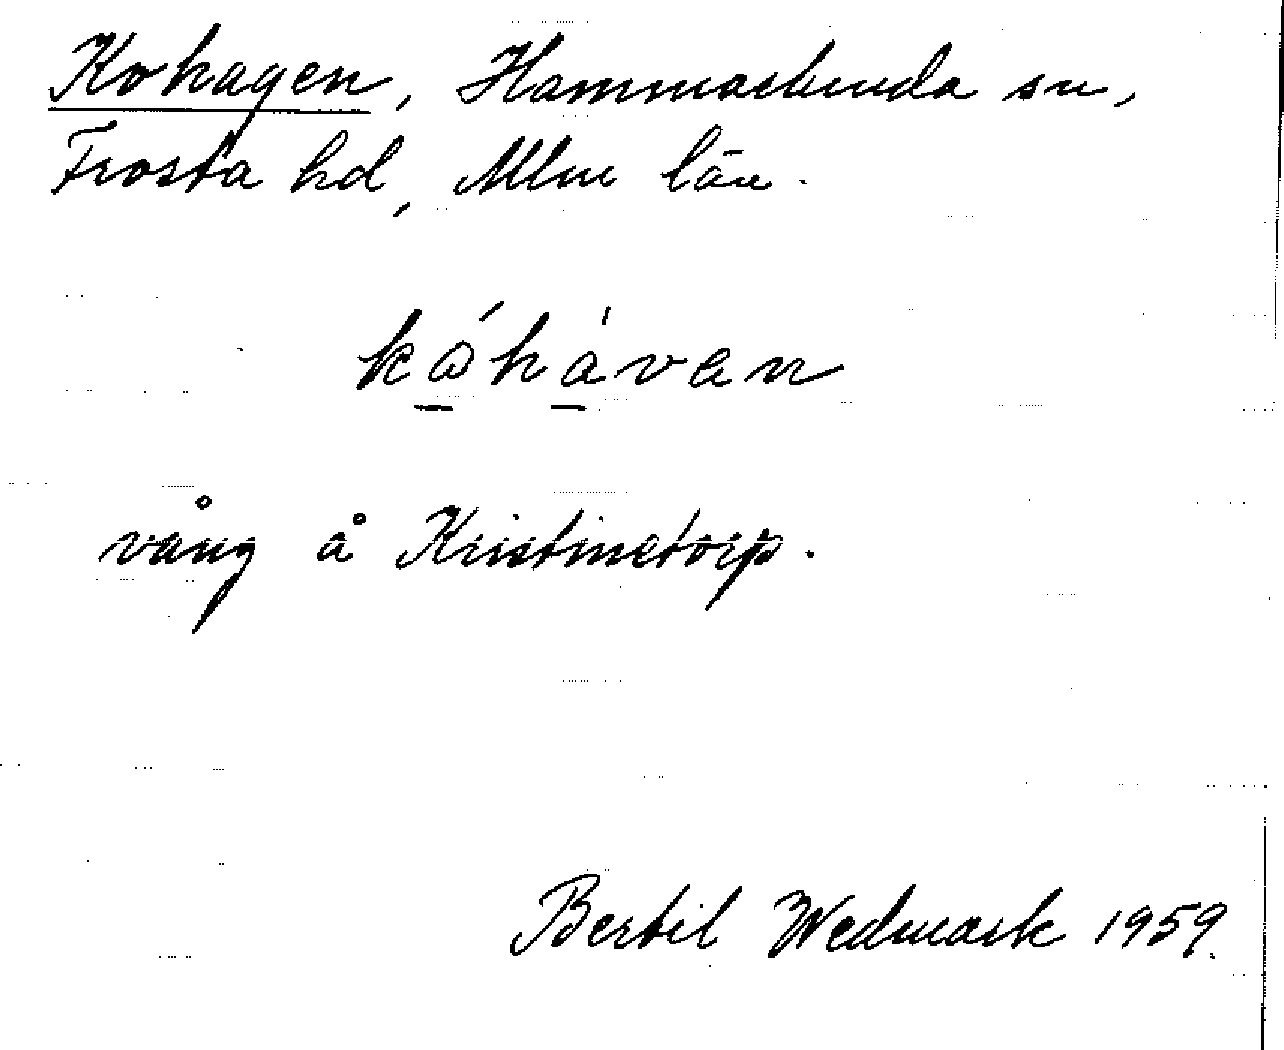 Kohagen, Hammarlunda sn,
Frosta hd, Mlm län.
kǫ́hạ̀van
vång å Kristinetorp.
Bertil Wedmark 1959.